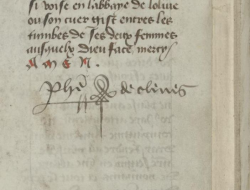 si voise en labbaye de loluie
ou son cuer gist entre les
tumbes de ses deux femmes
ausquelz dieu face mercy
AMEN.
Phe de cleues